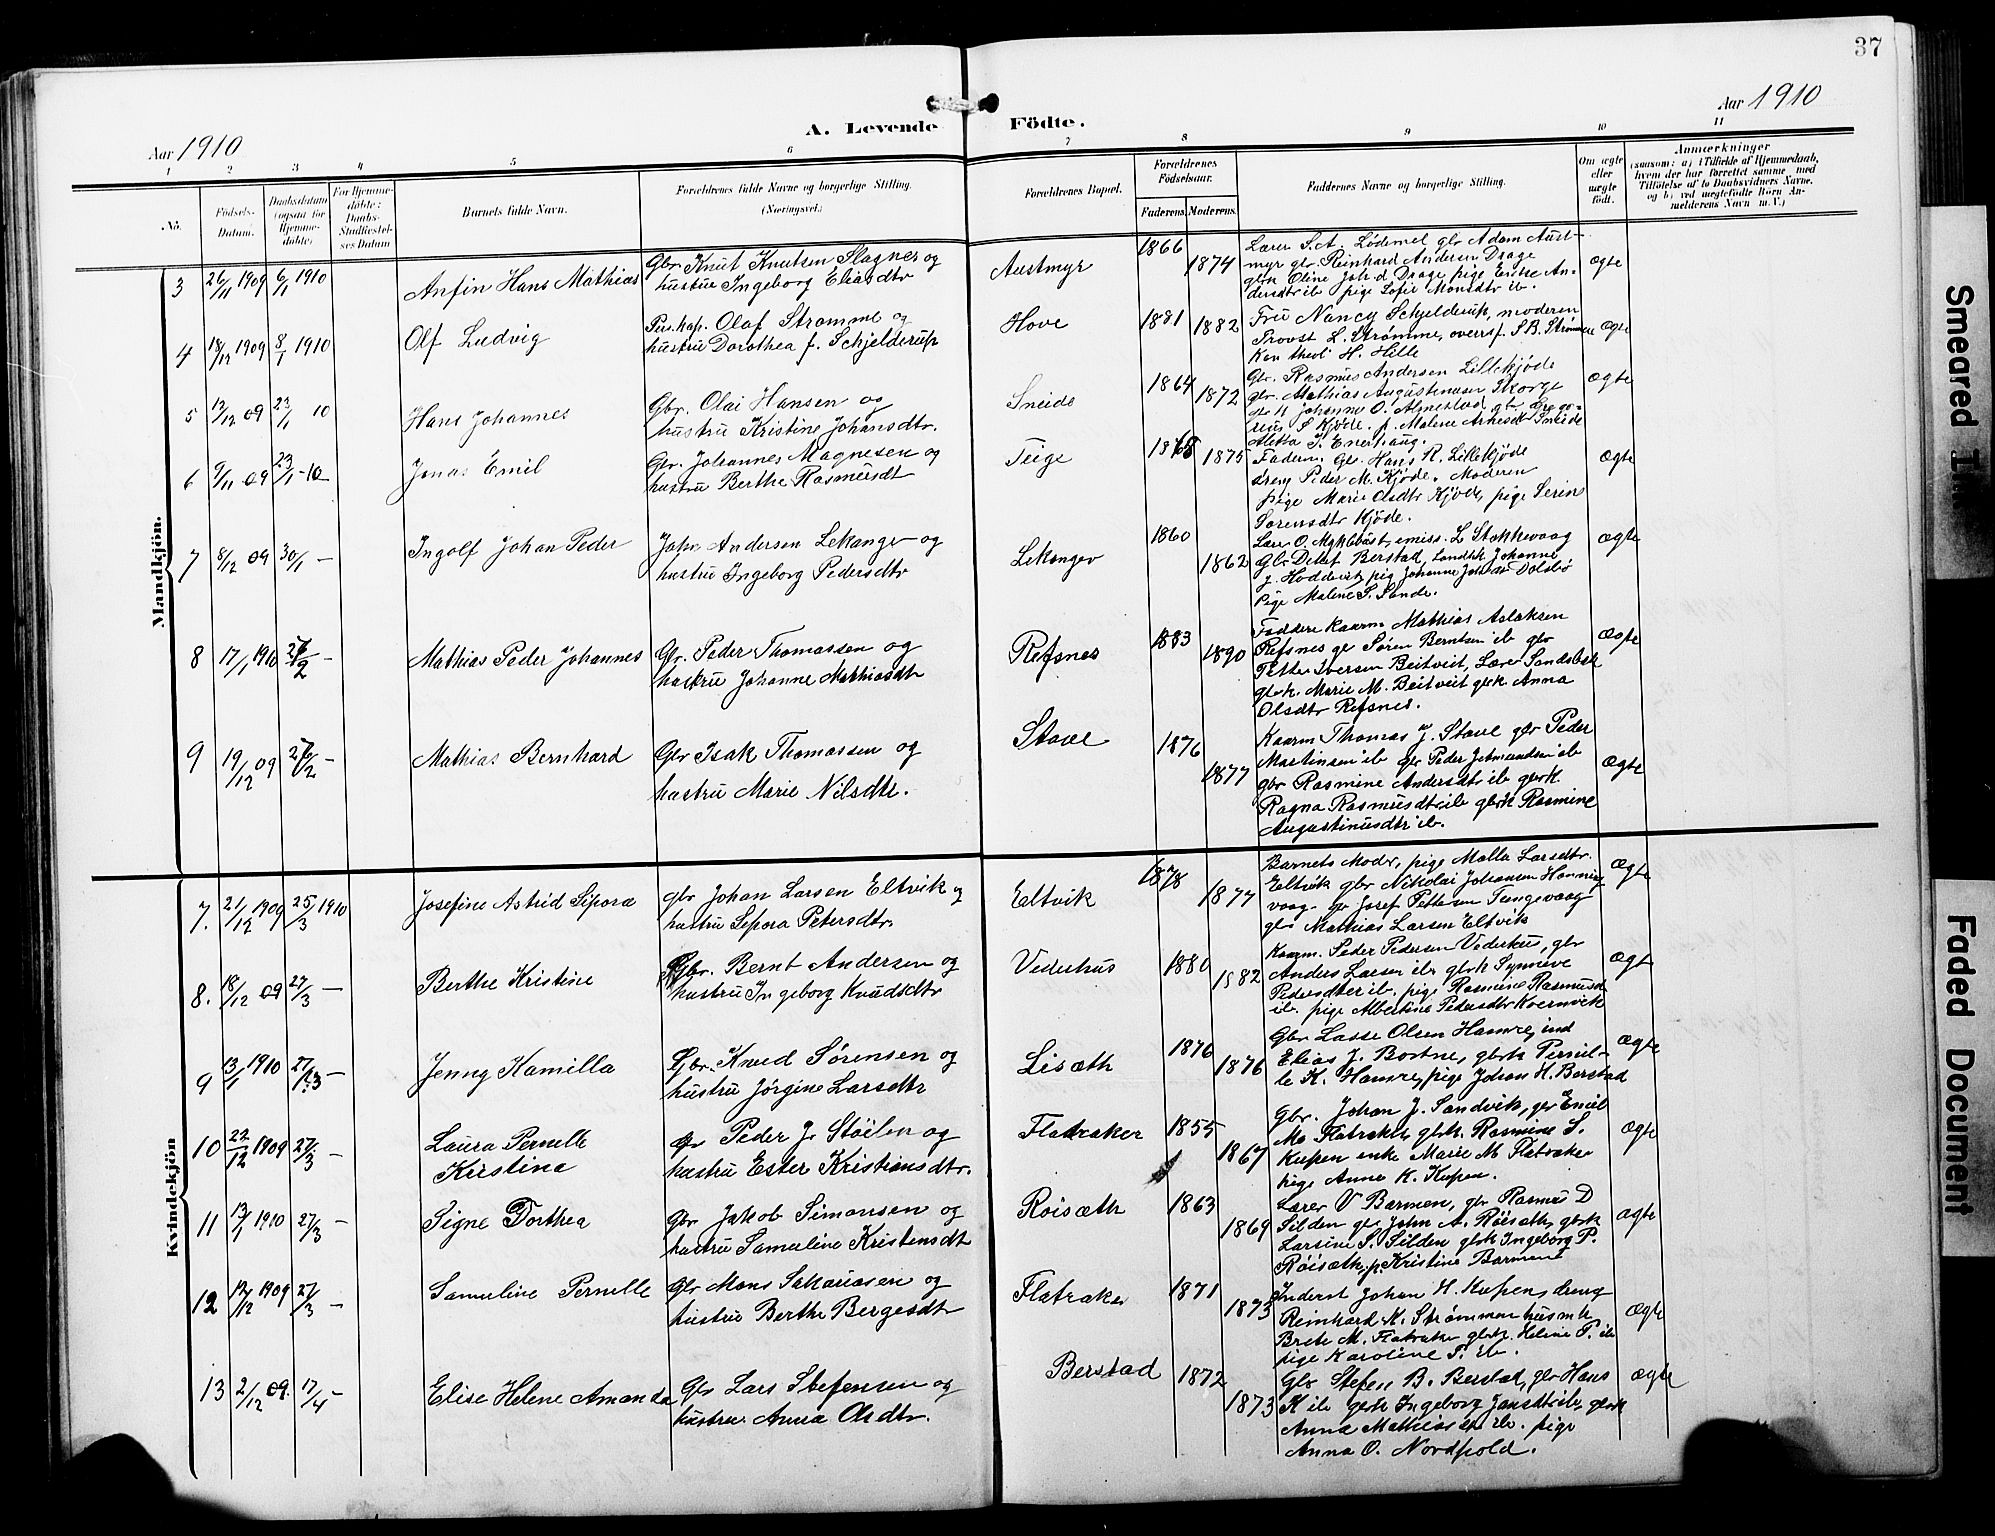 37
Aar 1910
A. Levende Födte.
Aar 1910
1 2 3 4 5 6 7 8 9 10 11
No.
Födsels-
Datum.
Daabsdatum
(ogsaa for
Hjemme-
döbte)
For Hjemme-
döbte:
Daabs-
Stadfæstel-
ses Datum
Barnets fulde Navn.
Forældrenes fulde Navne og borgerlige Stilling.
(Næringsvei.)
Forældrenes Bopæl.
Forældrenes
Födselsaar.
Faderens. Moderens.
Faddernes Navne og borgerlige Stilling.
Om ægte
eller
uægte
födt.
Anmærkninger
(saasom: a) i Tilfælde af Hjemmedaab,
hvem der har forrettet samme, med
Tilföielse af to Daabsvidners Navne,
og b) ved uægtefödte Börn An-
melderens Navn m. V.)
Mandkjön.
3 26/11 1909 6/1 1910 Anfin Hans Mathias
Gbr. Knut Knutsen Slagnes og
hustru Ingeborg Eliasdtr
Austmyr 1866 1874
Lærer S.A. Lødemel gbr Adam Aust-
myr gbr. Reinhard Andersen Drage
gbrk Oline Joh.d Drage, pige Enike An-
dersdtr ib pige Sofie Monsdtr ib.
Ægte
4 18/12 1909 8/1 1910 Olf Ludvig
Pers.kap. Olaf Strømme og
hustru Dorothea f. Schjelderup
Hove 1881 1882
Fru Nancy Schjelderup, moderen
Provst L. Strømme, overrsf. S.B. Strømme
Kan theol H. Hille
Ægte
5 12/12 09 23/1 10 Hans Johannes
Gbr. Olai Hansen og
hustru Kristine Johansdtr.
Sneide 1864 1872
Gbr. Rasmus Andersen Lillekjøde
gbr. Mathias Augustinusen Skorge
Ægte
6 9/11 09 23/1 - 10 Jonas Emil
Gbr. Johannes Magnesen og
hustru Berthe Rasmusdt
Teige 1868 1875
Faderen. Gbr. Hans R. Lillekjøde
dreng Peder M. Kjøde. Moderen
pige Marie Olsdtr Kjøde, pige Serine
Sørensdtr Kjøde.
Ægte
7 8/12 09 30/1 - Ingolf Johan Peder
John Andersen Lekanger og
hustru Ingeborg Pedersdtr
Lekanger 1860 1862
Lærer O. Myklebust, emiss. L Stokkevaag
Gbr Detlef Berstad, Landhk Johanne
J. Hoddevik, pig Johanne Dolsbø
Pige Malene S. Sande.
Ægte
8 17/1 1910 27/2 - Mathias Peder Johannes
Gbr. Peder Thomassen og
hustru Johanne Mathiasdt
Refsnes 1883 1890
Faddere Kaarm Mathias Aslaksen
Refsnes gbr Søren Berntsen ib gbr
Petter Iversen Beitveit, Lærer Sandsbak
gbrk. Marie M. Beitveit gbrk. Anna
Olsdtr Refsnes.
Ægte
9 19/12 09 27/2 - Mathias Bernhard
Gbr Isak Thomassen og
hustru Marie Nilsdtr.
Stave 1876 1877
Kaarm Thomas J. Stave gbr Peder
Martinsen ib gbr Peder Johannssen ib
gbr Rasmine Andersdtr ib gbrk
Ragna Rasmusdtr ib gbrk Rasmine
Augustinusdtr ib.
Ægte
Kvindekjön
7. 21/12 1909 25/3 1910 Josefine Astrid Sipora
gbr Johan Larsen Eltvik og
hustru Sepora Petersdtr.
Eltvik 1878 1877
Barnets Moder, pige Malla Larsdtr.
Eltvik gbr Nikolai Johansen Honning-
vaag gbr Josef Pettersen Tungevaag
gbr Mathias Larsen Eltvik
Ægte
8. 18/12 09 27/3 - Berthe Kristine
Gbr. Bernt Andersen og
hustru Ingeborg Knudsdtr
Vederhus 1880 1882
Kaarm. Peder Pedersen Vederhus, gbr
Anders Larsen ib gbrk Synneve
Pedersdtter ib. pige Rasmine Rasmusd
ib. pige Albertine Pedersdtr Kvernvik
Ægte
9 13/1 1910 27/3 - Jenny Kamilla
Gbr. Knud Sørensen og
hustru Jørgine Larsdtr
Lisæth 1876 1876
Gbr Lasse Olsen Hamre, ind
Elias J. Bortne, gbrk Pernil-
le K. Hamre, pige Johan H. Berstad
Ægte
10 22/12 1909 27/3 - Laura Pernelle
Kirstina
gr Peder J. Støilen og
hustru Ester Kristiansdtr.
Flatraker 1855 1867
Gbr. Johan J. Sandvik, gbr Emil
Mo Flatraker gbrk. Rasmine S.
Kupen enke Marie M. Flatraker
pige Anne K. Kupen.
Ægte
11 13/1 1910 27/3 - Signe Dorthea
Gbr Jakob Simonsen og
hustru Samuline Kristensdt
Røisæth 1863 1869
Lærer V Barmen, gbr Rasmus D
Silden gbr John A. Røisæth, gbrk
Larsine S. Silden gbrk Ingeborg P.
Røisæth, p. Kristine Barmen
Ægte
12 12/12 1909 27/3 - Samueline Pernelle
Gbr Mons Sakariasen og
hustru Berthe Bergesdt
Flatraker 1871 1873
Inderst Johan H. Kupen, dreng
Reinhard K. Strømmen husmk
Brete M. Flatraker gbrk. Helene P. ib
pige Karoline S. ib.
Ægte
13 2/12 09. 17/4 - Elise Helene Amanda
Gbr Lars Stefensen og
hustru Anna Olsdtr.
Berstad 1872 1873
Gbr Stefen B. Berstad, gbr Hans
K ib gbrk Ingeborg Jansdtr ib, gbrk
Anna Mathiasdtr ib. pige
Anna O. Nordpold.
Ægte
Smeared
Faded Document